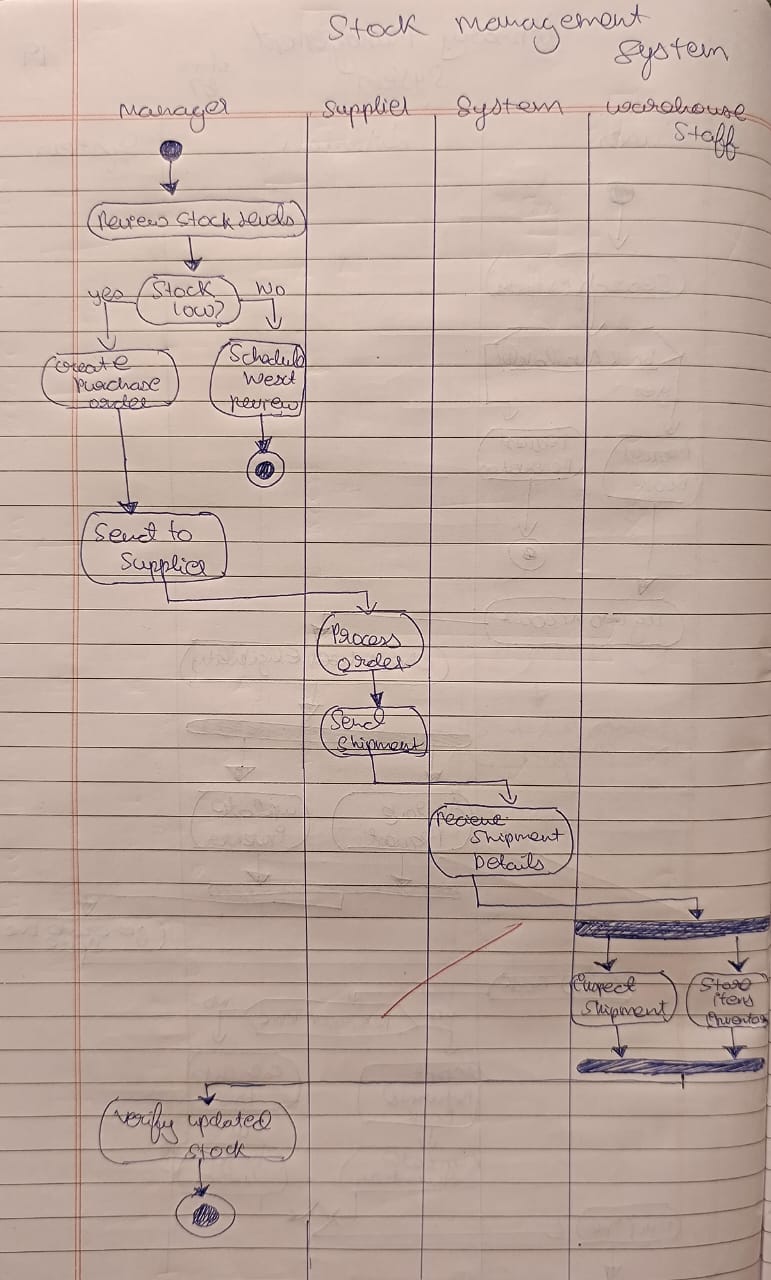 Stock Management
System
Manager Supplier System Warehouse
Staff
Review Stock Levels
yes
Stock
low?
No
Create
Purchase
order
Schedule
Next
review
Send to
Supplier
Process
Order
Send
Shipment
Recieve
Shipment
Details
Inspect
Shipment
Store
items
Inventory
Verify updated
Stock